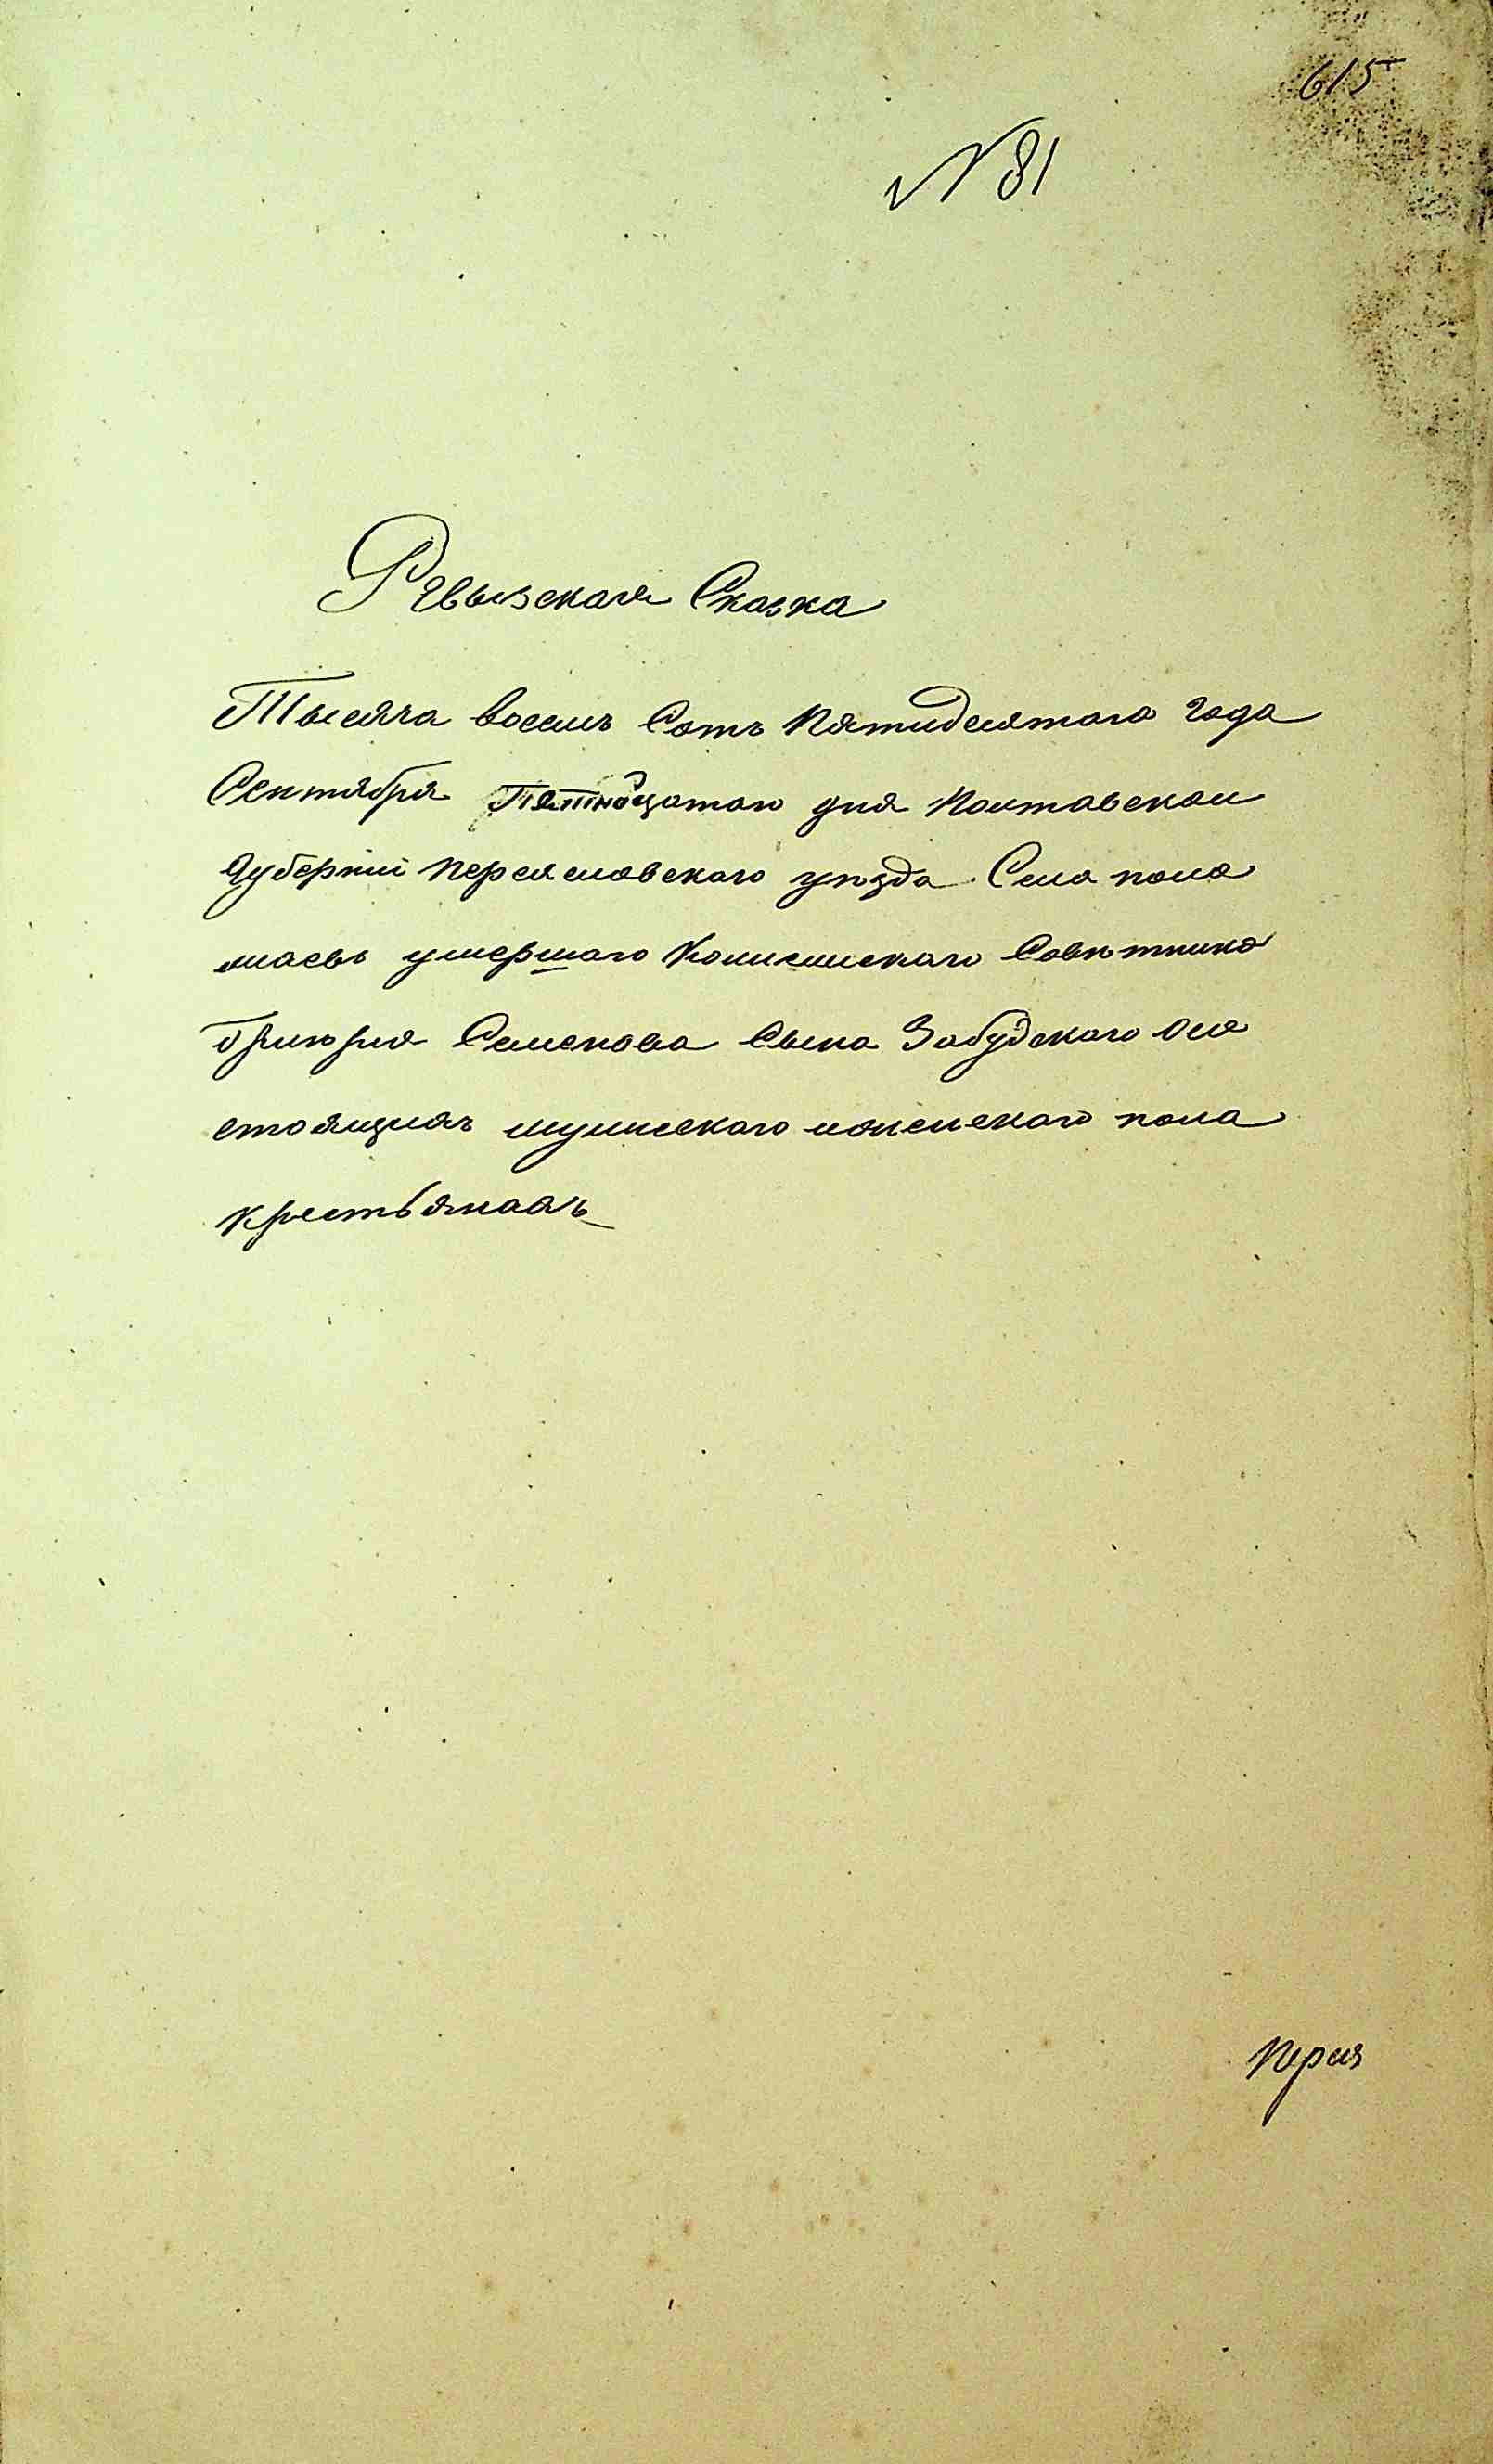 615
№ 81
Ревызская Сказка
Тысяча восемь Сотъ Пятидесятого года
Сентября Пятнадцатого дня Полтавской
Губерніи Переяславского уѣзда Села пома
умершаго Колежскаго Совѣтника
Григория Семенова Сына Забудского
состоящихъ мужескаго иженского пола
крестьянахъ